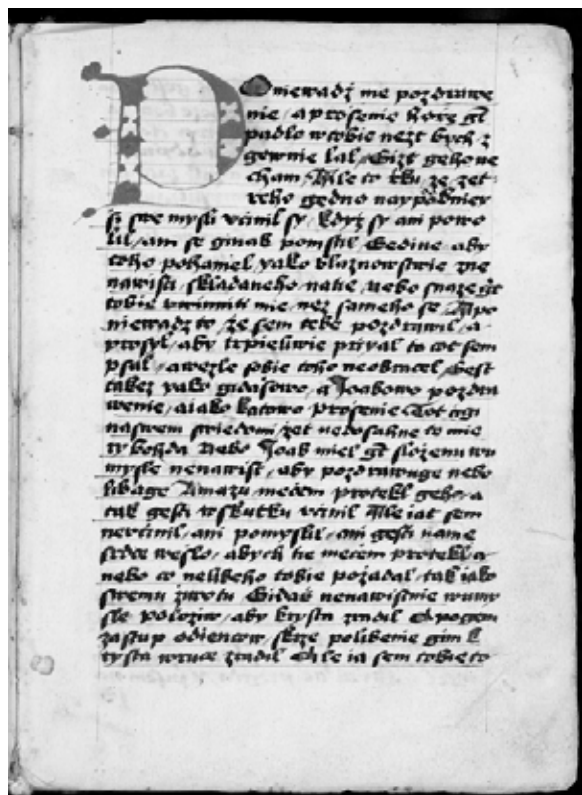 Poniewadż me pozdrawe
nie / a prosenie horze gt
padlo w tobie nezt bych z
gewnie lal /
cham / Ale to tku ze zet
geho gedno naypodmier
si swe mysli vcinil sy / kdyz sy ani powo
lil / ani se ginak pomstil / Gedine aby
toho pohaniel yako blaznowstwie zne
nawisti skladaneho natie / nebo snaze gt
tobie vwiniti mie / nez sameho se / A po
niewadz to / że sem tebe pozdrawil / a
prosyl / aby trpieliwie priyal to cot sem
psal / a wezle sobie toho neobracel / Gest
takez yako gidasowo / a Joabowo pozdra
wenie / a iako katowo prosenie
naswem swiedomi / zet nedosahne to mie
Nebo Joab miel gt slozenu wu
mysle nenawist / aby pozdrawuge nebo
libage Amazu mečem protekl geho / a
tak gesti wskutku vcinil Ale iat sem
nevcinil / ani pomyslil / ani gesti na me
srdce weslo / abych tie mecem protekl /
nebo co neliбeho tobie pożadal / tak iako
swemu żiwotu Gidas nenawistnie wumy
sle polożiw / aby krysta zradil
zastup odiencow / skrze polibenie gim k
rysta wruce zradil Ale ia sem tobie to